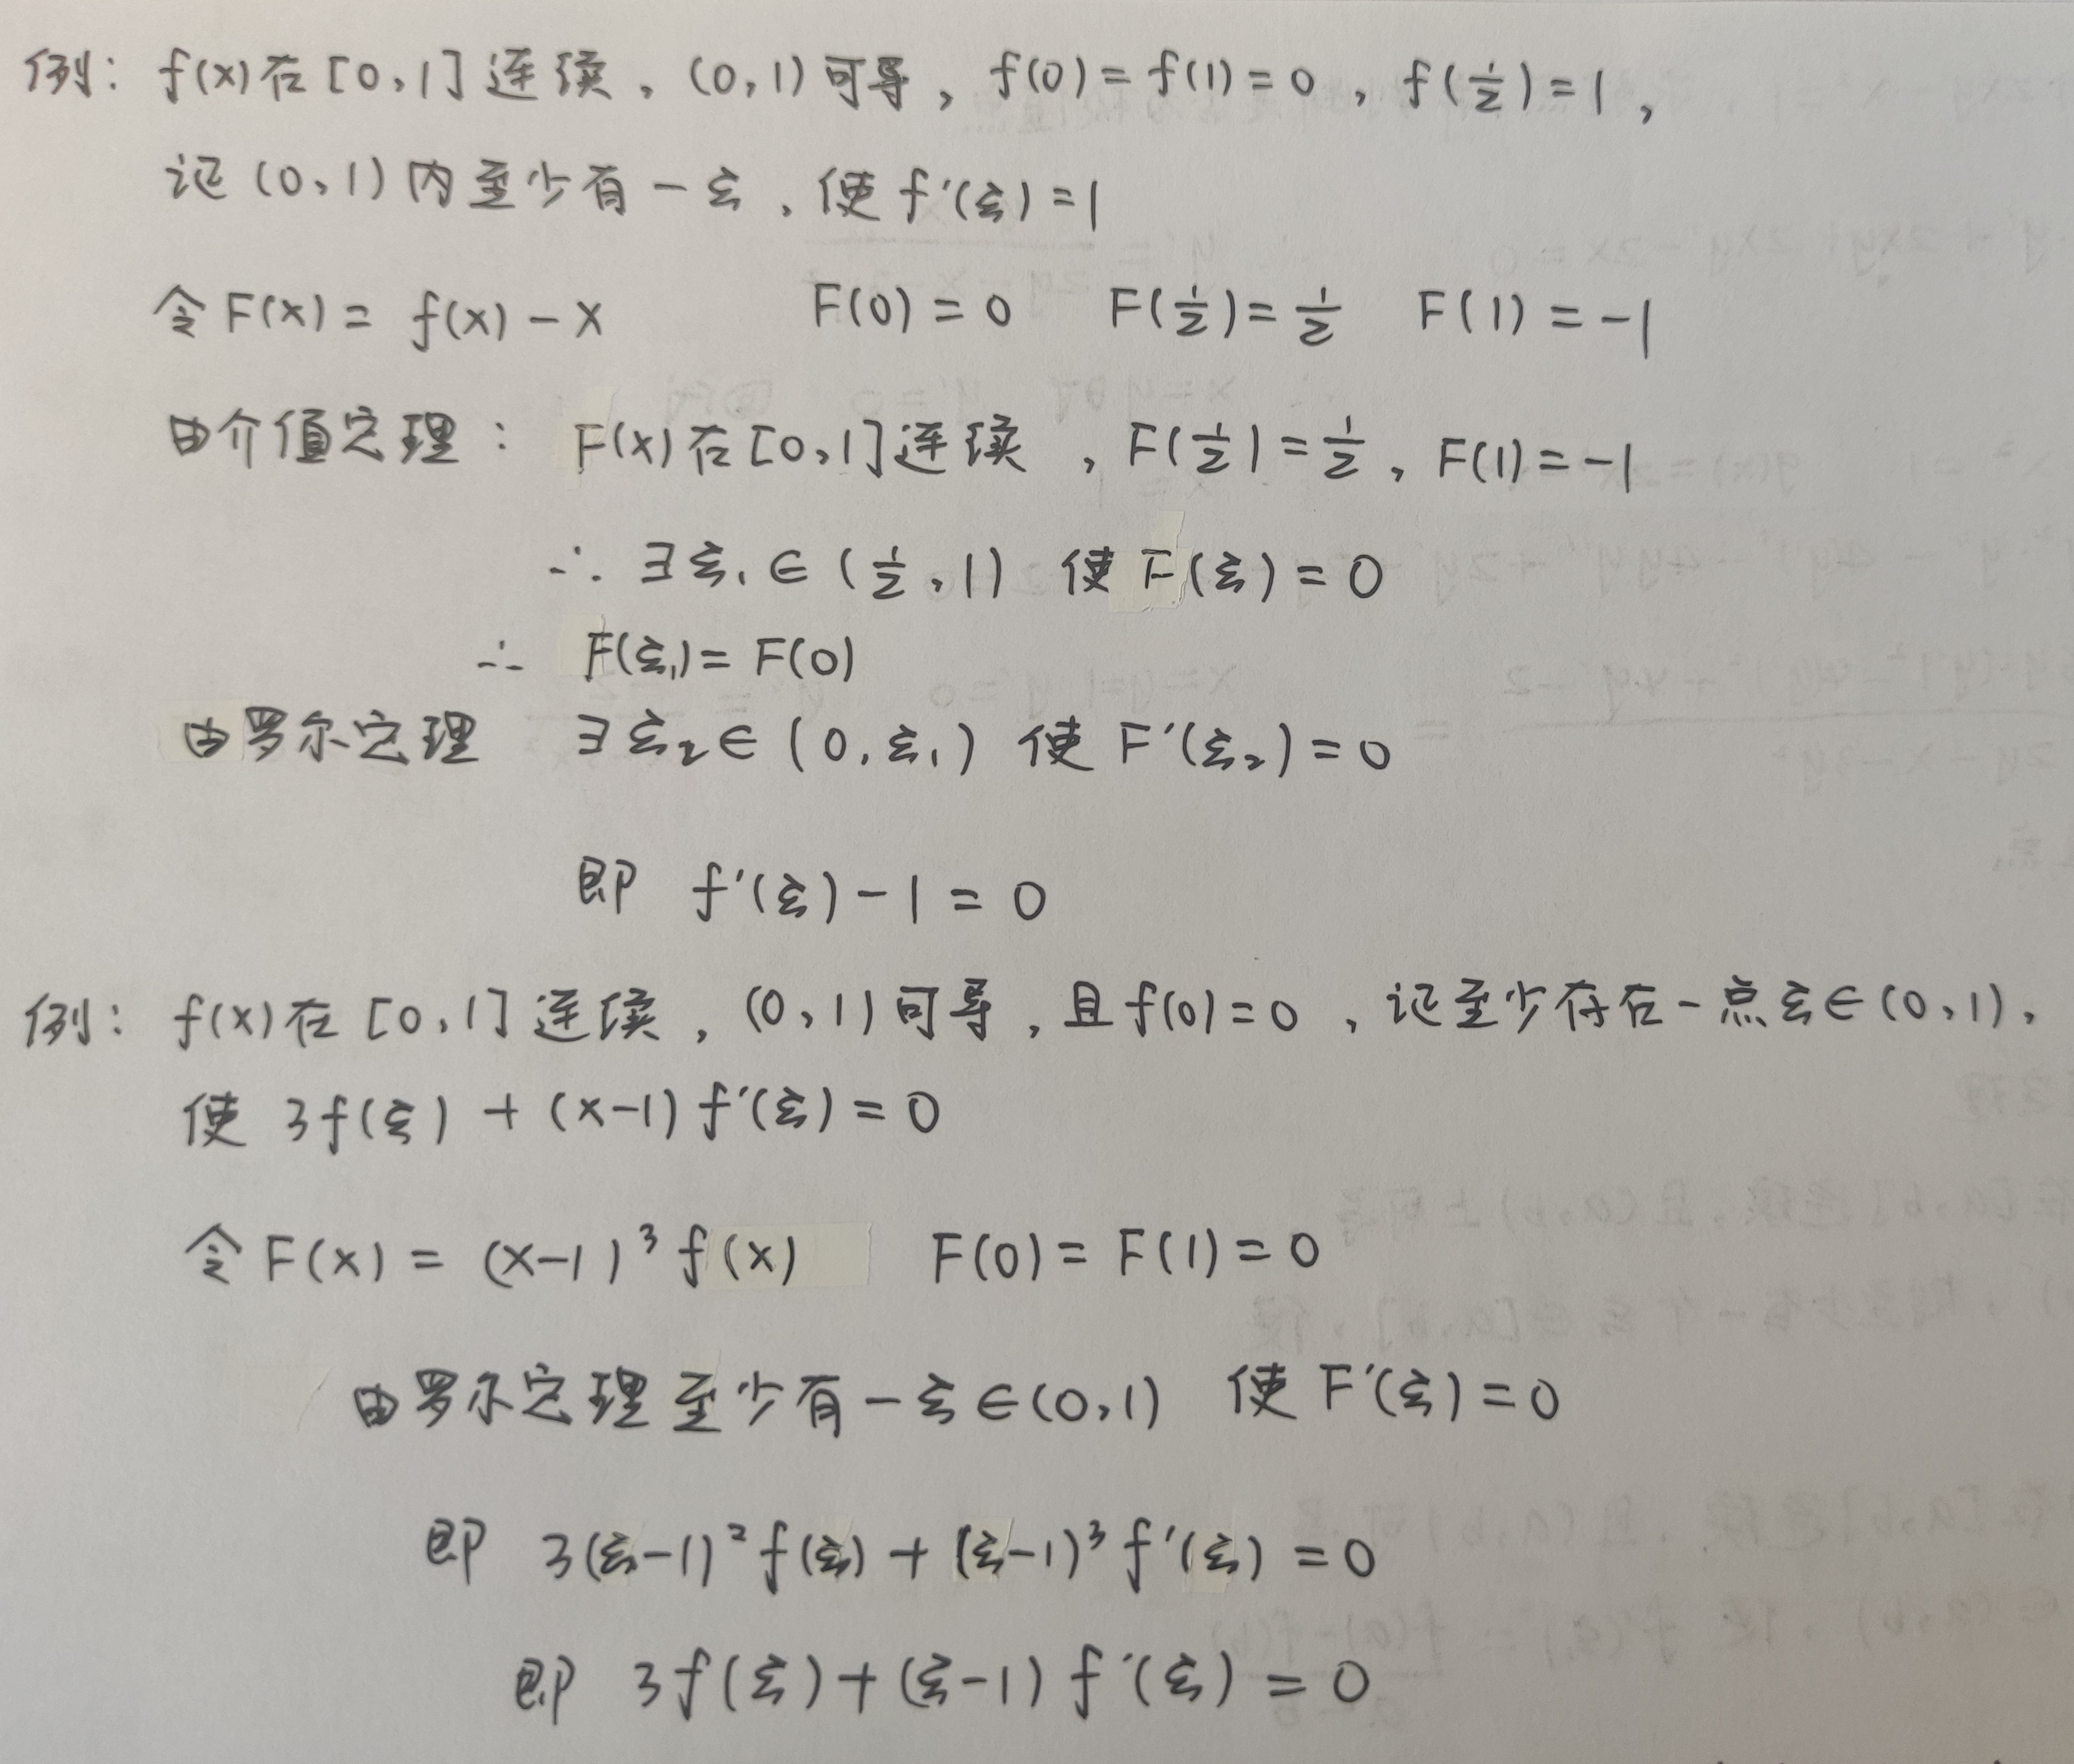 例: f(x)在[0,1]连续，(0,1)可导，f(0)=f(1)=0，f(1/2)=1，
记(0,1)内至少有一ξ，使f'(ξ)=1
令F(x)=f(x)-x F(0)=0 F(1/2)=1/2 F(1)=-1
由介值定理: F(x)在[0,1]连续，F(1/2)=1/2，F(1)=-1
∴ ∃ξ₁∈(1/2,1) 使F(ξ)=0
∴ F(ξ₁)=F(0)
由罗尔定理 ∃ξ₂∈(0,ξ₁) 使F'(ξ₂)=0
即 f'(ξ)-1=0
例: f(x)在[0,1]连续，(0,1)可导，且f(0)=0，记至少存在一点ξ∈(0,1)，
使 3f(ξ)+(x-1)f'(ξ)=0
令F(x)=(x-1)³f(x) F(0)=F(1)=0
由罗尔定理至少有一ξ∈(0,1) 使F'(ξ)=0
即 3(ξ-1)²f(ξ)+(ξ-1)³f'(ξ)=0
即 3f(ξ)+(ξ-1)f'(ξ)=0